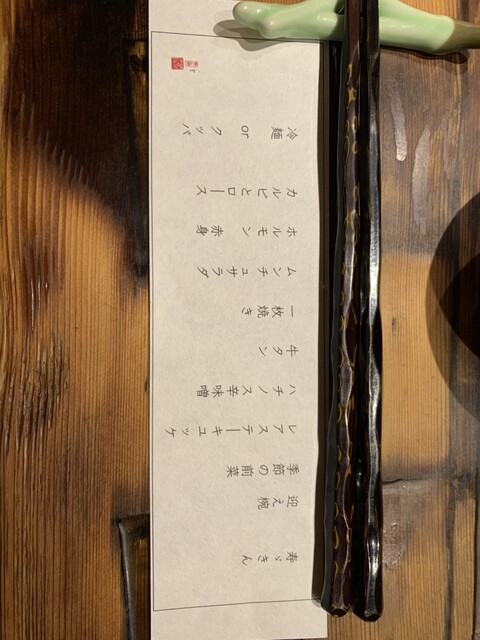 寿ゞきん
迎え椀
季節の前菜
レアステーキユッケ
ハチノス辛味噌
牛タン
一枚焼き
ムンチュサラダ
ホルモン 赤身
カルビとロース
冷麺 or クッパ